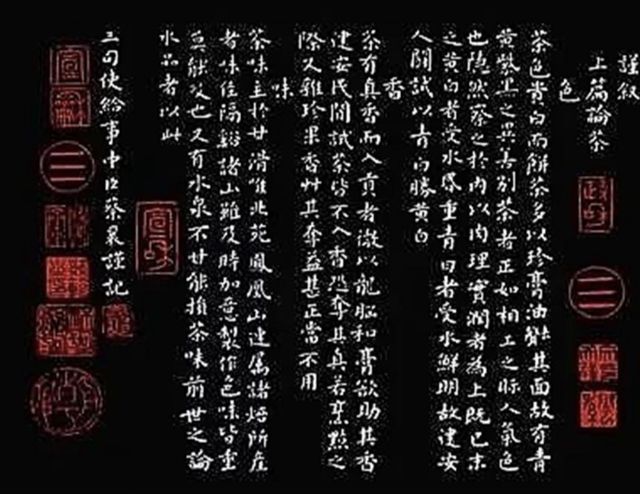 謹叙
上篇論茶
色
茶色貴白而餅茶多以珍膏油其面故有青
黃紫黑之異善別茶者正如相工之眎人氣色
也隱然察之於內以肉理實潤者為上既已末
之黃白者受水昏重青白者受水鮮明故建安
人鬭試以青白勝黃白
香
茶有真香而入貢者微以龍腦和膏欲助其香
建安民間試茶皆不入香恐奪其真若烹點之
際又雜珍果香艸其奪益甚正當不用
味
茶味主於甘滑唯北苑鳳凰山連屬諸焙所產
者味佳隔谿諸山雖及時加意製作色味皆重
莫能及也又有水泉不甘能損茶味前世之論
水品者以此
三司使給事中臣蔡襄謹記